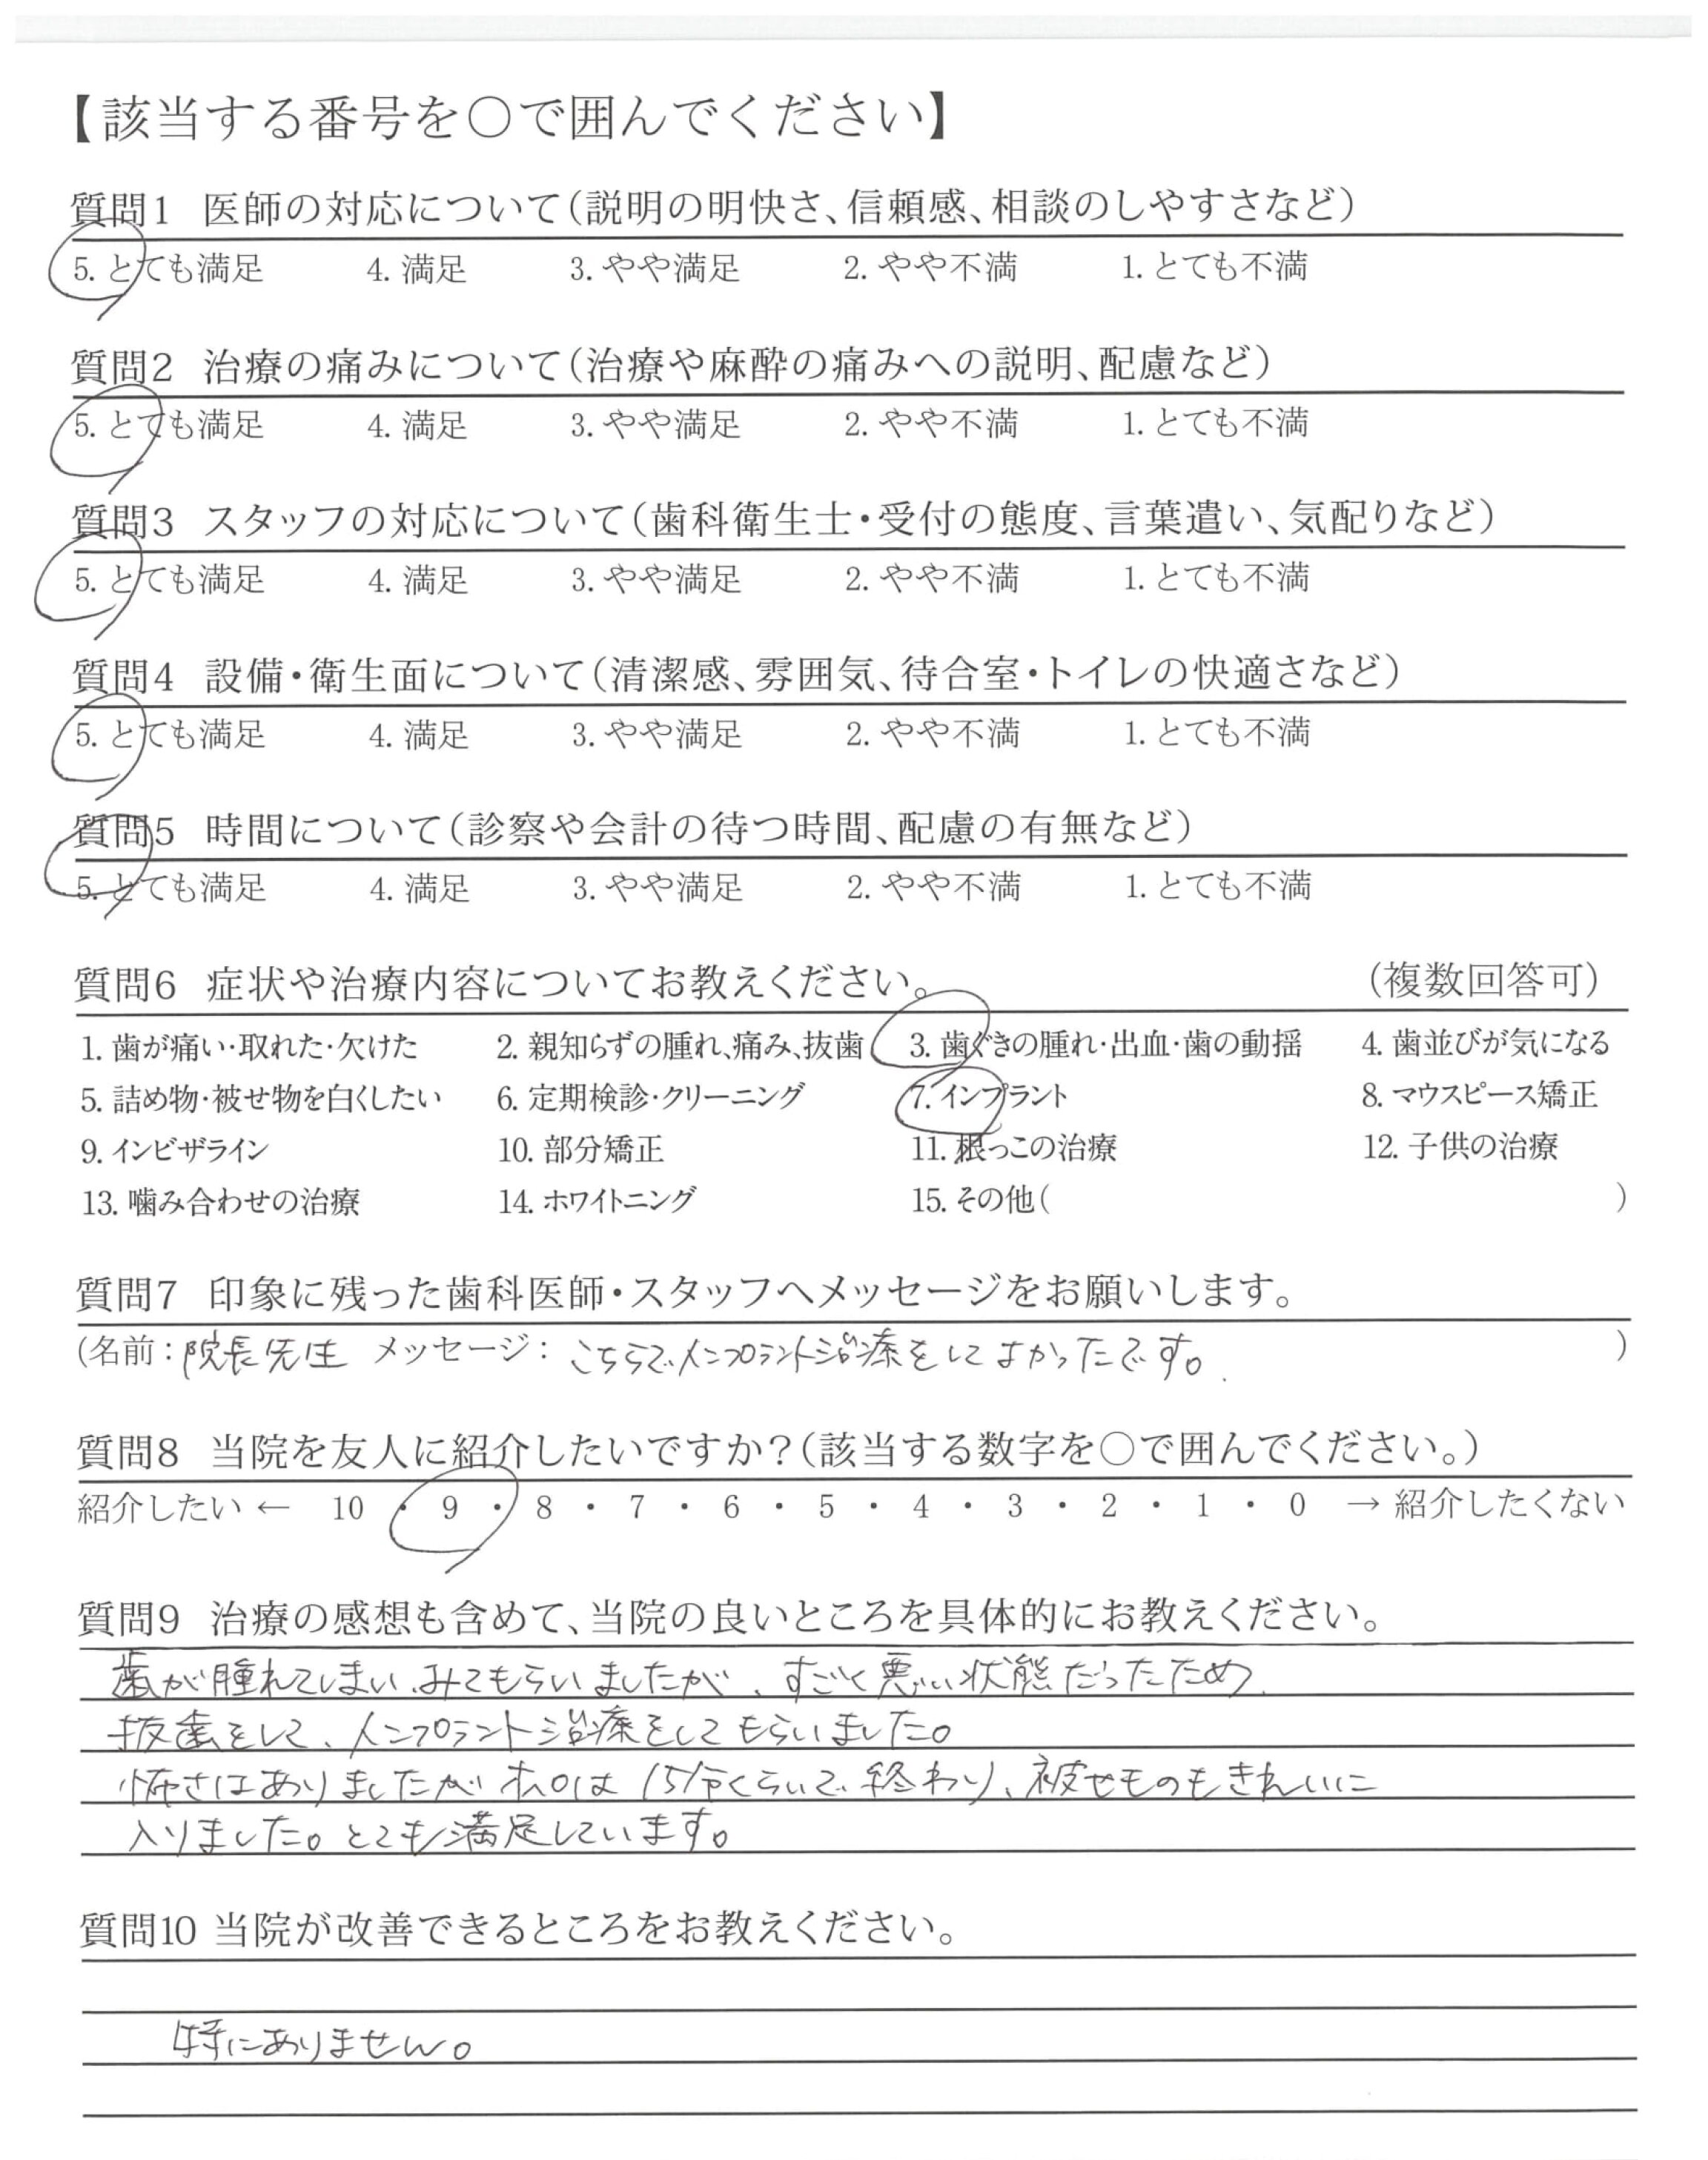 【該当する番号を○で囲んでください】
質問1 医師の対応について(説明の明快さ、信頼感、相談のしやすさなど)
5. とても満足 4. 満足 3. やや満足 2. やや不満 1. とても不満
質問2 治療の痛みについて(治療や麻酔の痛みへの説明、配慮など)
5. とても満足 4. 満足 3. やや満足 2. やや不満 1. とても不満
質問3 スタッフの対応について(歯科衛生士・受付の態度、言葉遣い、気配りなど)
5. とても満足 4. 満足 3. やや満足 2. やや不満 1. とても不満
質問4 設備・衛生面について(清潔感、雰囲気、待合室・トイレの快適さなど)
5. とても満足 4. 満足 3. やや満足 2. やや不満 1. とても不満
質問5 時間について(診察や会計の待つ時間、配慮の有無など)
5. とても満足 4. 満足 3. やや満足 2. やや不満 1. とても不満
質問6 症状や治療内容についてお教えください。 (複数回答可)
1. 歯が痛い・取れた・欠けた 2. 親知らずの腫れ、痛み、抜歯 3. 歯ぐきの腫れ・出血・歯の動揺 4. 歯並びが気になる
5. 詰め物・被せ物を白くしたい 6. 定期検診・クリーニング 7. インプラント 8. マウスピース矯正
9. インビザライン 10. 部分矯正 11. 根っこの治療 12. 子供の治療
13. 噛み合わせの治療 14. ホワイトニング 15. その他( )
質問7 印象に残った歯科医師・スタッフへメッセージをお願いします。
(名前:院長先生 メッセージ:こちらでインプラント治療をしてよかったです。 )
質問8 当院を友人に紹介したいですか?(該当する数字を○で囲んでください。)
紹介したい ← 10 ・ 9 ・ 8 ・ 7 ・ 6 ・ 5 ・ 4 ・ 3 ・ 2 ・ 1 ・ 0 → 紹介したくない
質問9 治療の感想も含めて、当院の良いところを具体的にお教えください。
歯が腫れてしまい、みてもらいましたが、すごく悪い状態だったため、
抜歯をして、インプラント治療をしてもらいました。
怖さはありましたが オペは 15分くらいで 終わり、被せものもきれいに
入りました。とても満足しています。
質問10 当院が改善できるところをお教えください。
特にありません。